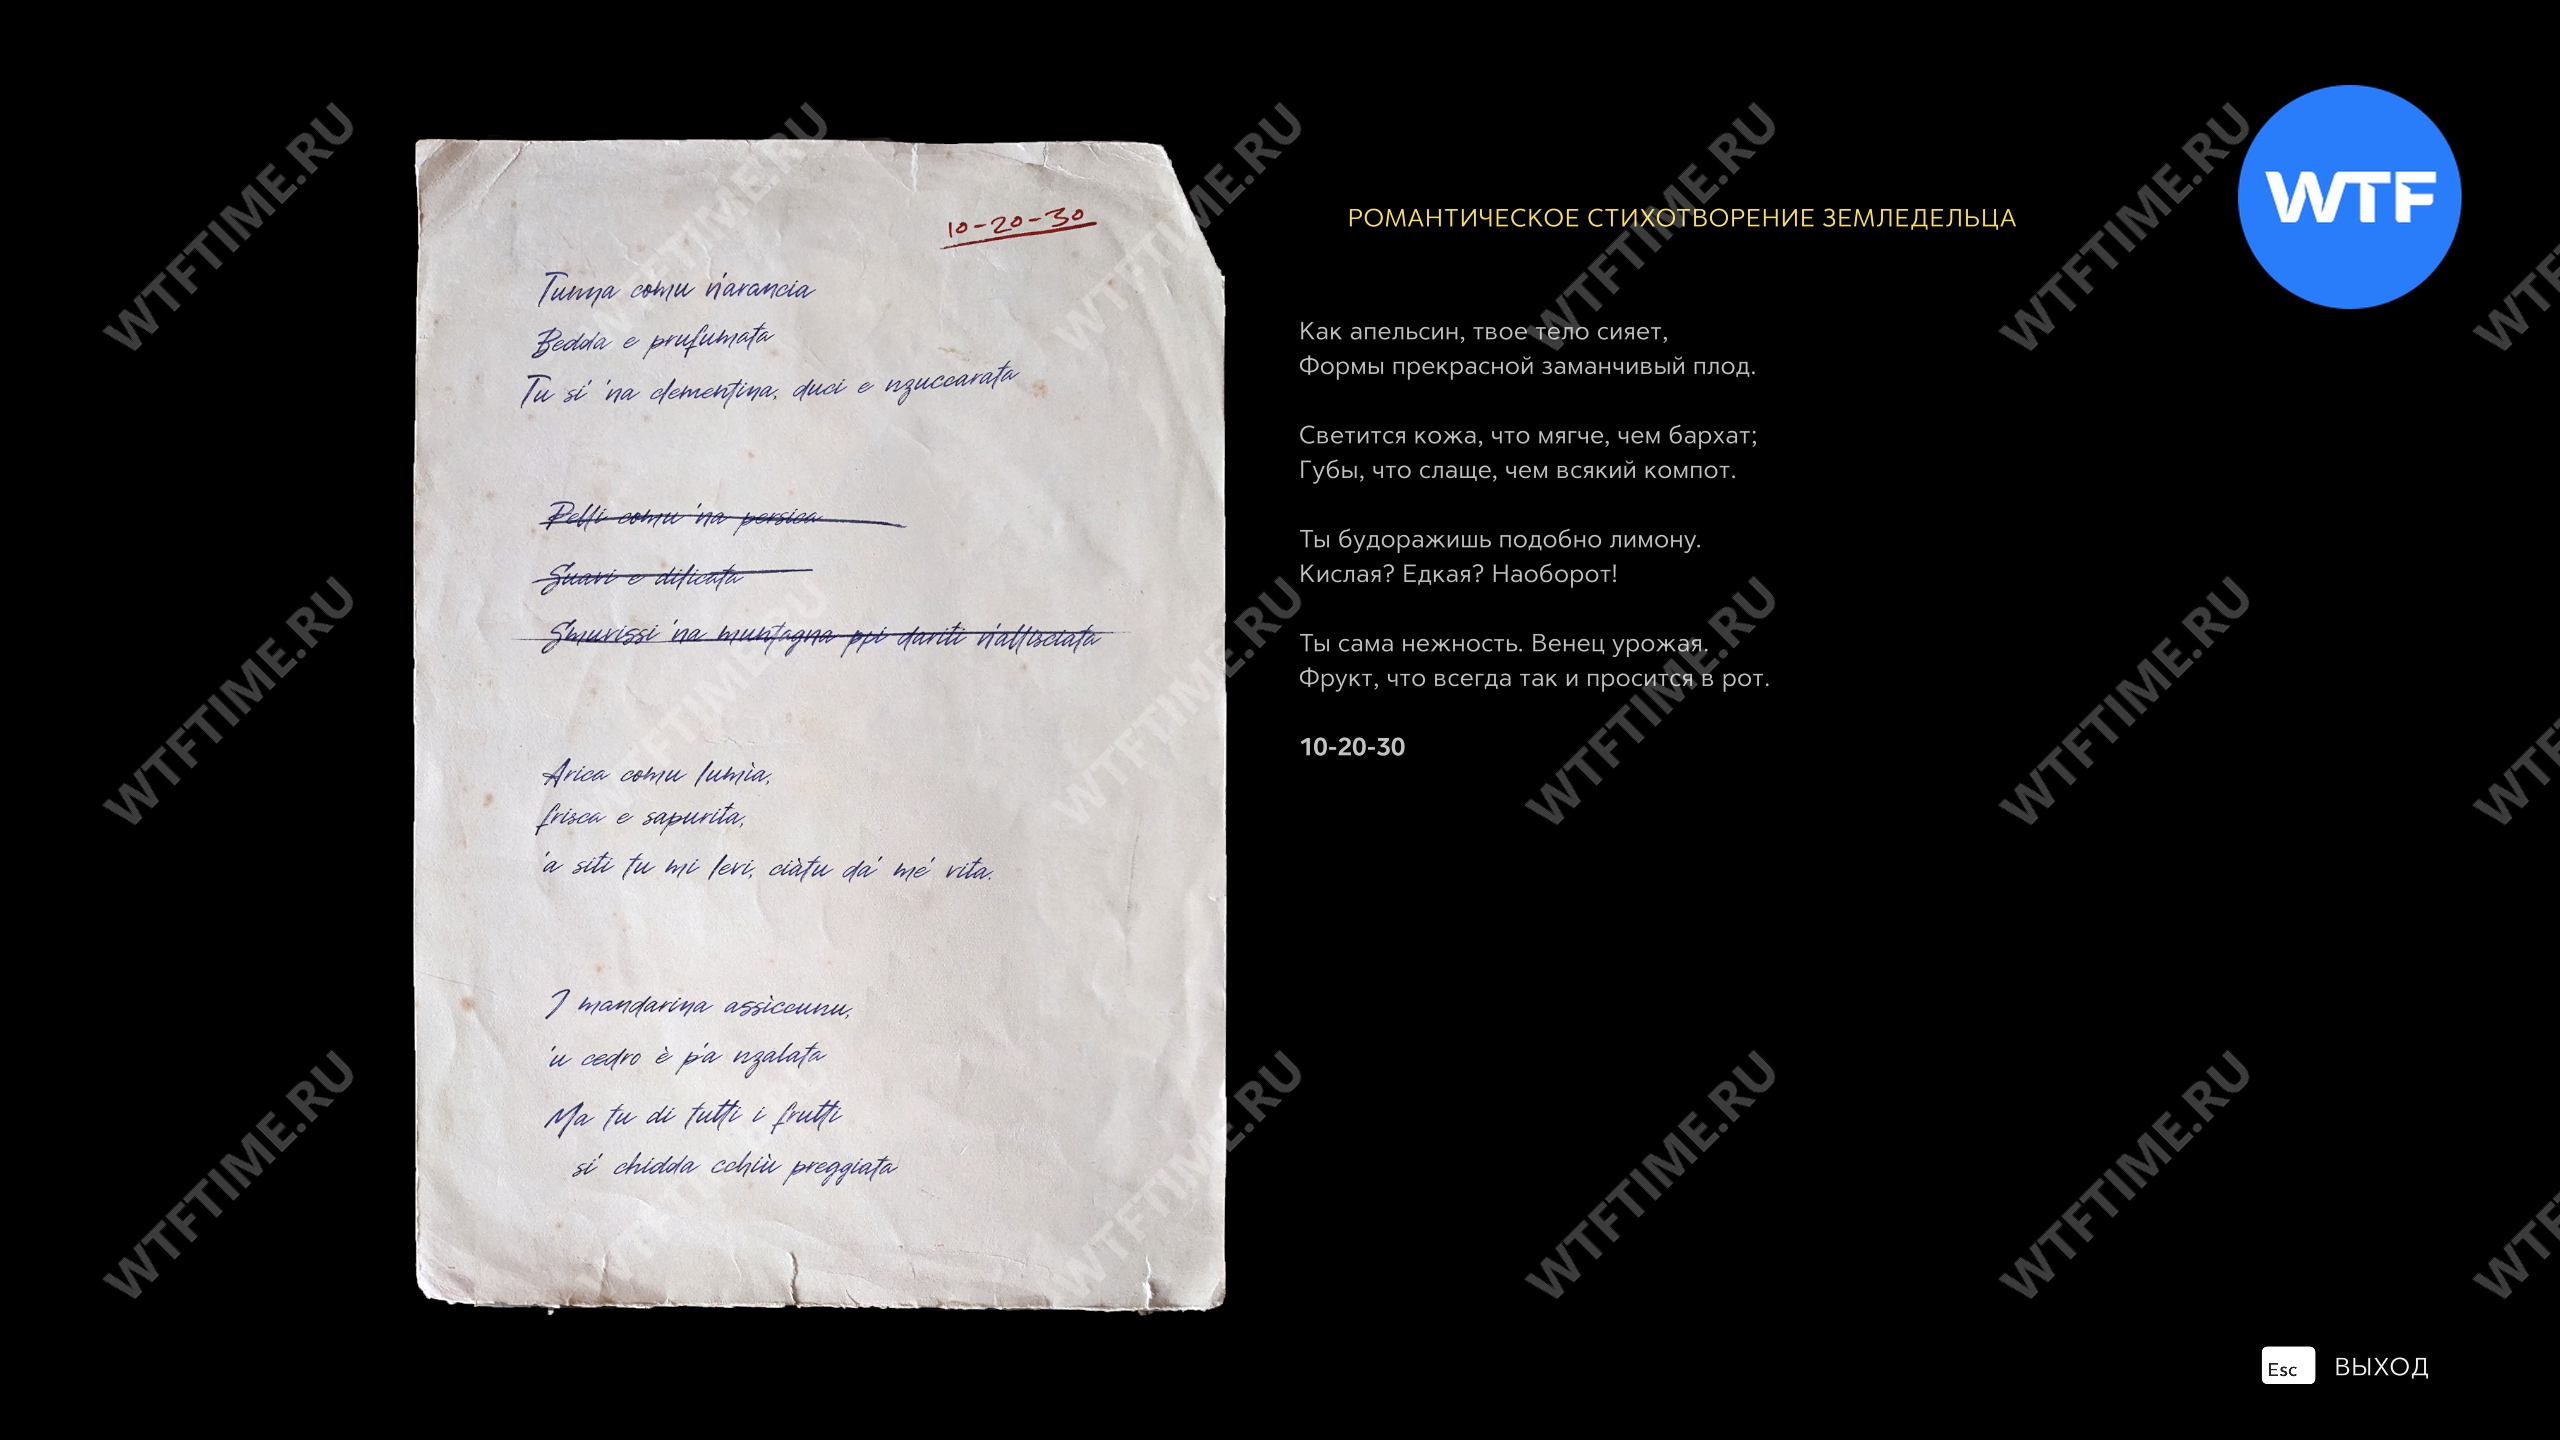 10-20-30
Tunna comu n'arancia
Bedda e prufumata
Tu si' 'na clementina, duci e nzuccarata
Pelli comu 'na persica
Suavi e dilicata
Smurissi 'na muntagna ppi dariti n'allisciata
Arica comu lumìa,
frisca e sapurita,
'a siti tu mi levi, ciàtu da' me' vita.
I mandarina assìccunu,
'u cedro è p'a nzalata
Ma tu di tutti i frutti
si' chidda cchiù preggiata
WTF
РОМАНТИЧЕСКОЕ СТИХОТВОРЕНИЕ ЗЕМЛЕДЕЛЬЦА
Как апельсин, твое тело сияет,
Формы прекрасной заманчивый плод.
Светится кожа, что мягче, чем бархат;
Губы, что слаще, чем всякий компот.
Ты будоражишь подобно лимону.
Кислая? Едкая? Наоборот!
Ты сама нежность. Венец урожая.
Фрукт, что всегда так и просится в рот.
10-20-30
Esc ВЫХОД
WTFTIME.RU